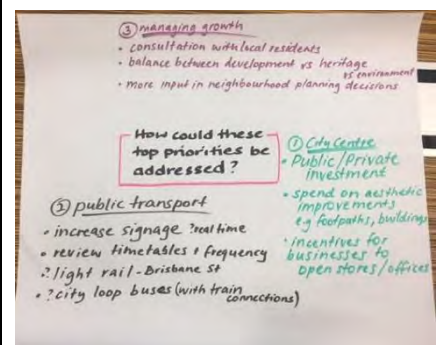 ③ managing growth
• consultation with local residents
• balance between development vs heritage
vs environment
• more input in neighbourhood planning decisions
How could these
top priorities be
addressed?
① City Centre
• Public/Private
investment
• spend on aesthetic
improvements
e.g footpaths, buildings
• incentives for
businesses to
open stores/offices
② public transport
• increase signage ?real time
• review timetables + frequency
• ?light rail - Brisbane St
• ?city loop buses (with train
connections)